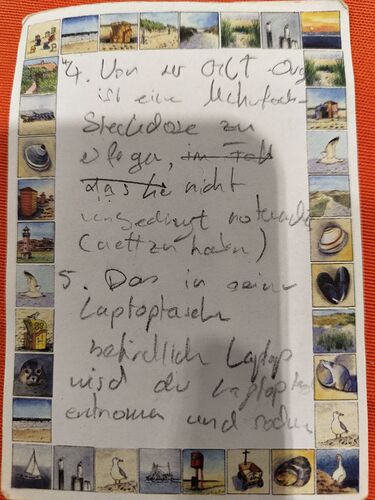 4. Von der Orct-Org
ist eine Mehrfach-
Steckdose zu
erfragen, im Fall
das sie nicht
unbedingt notwend
(nett zu haben)
5. Das in seiner
Laptoptasche
befindlich Laptop
wird der Laptopta
entnomen und